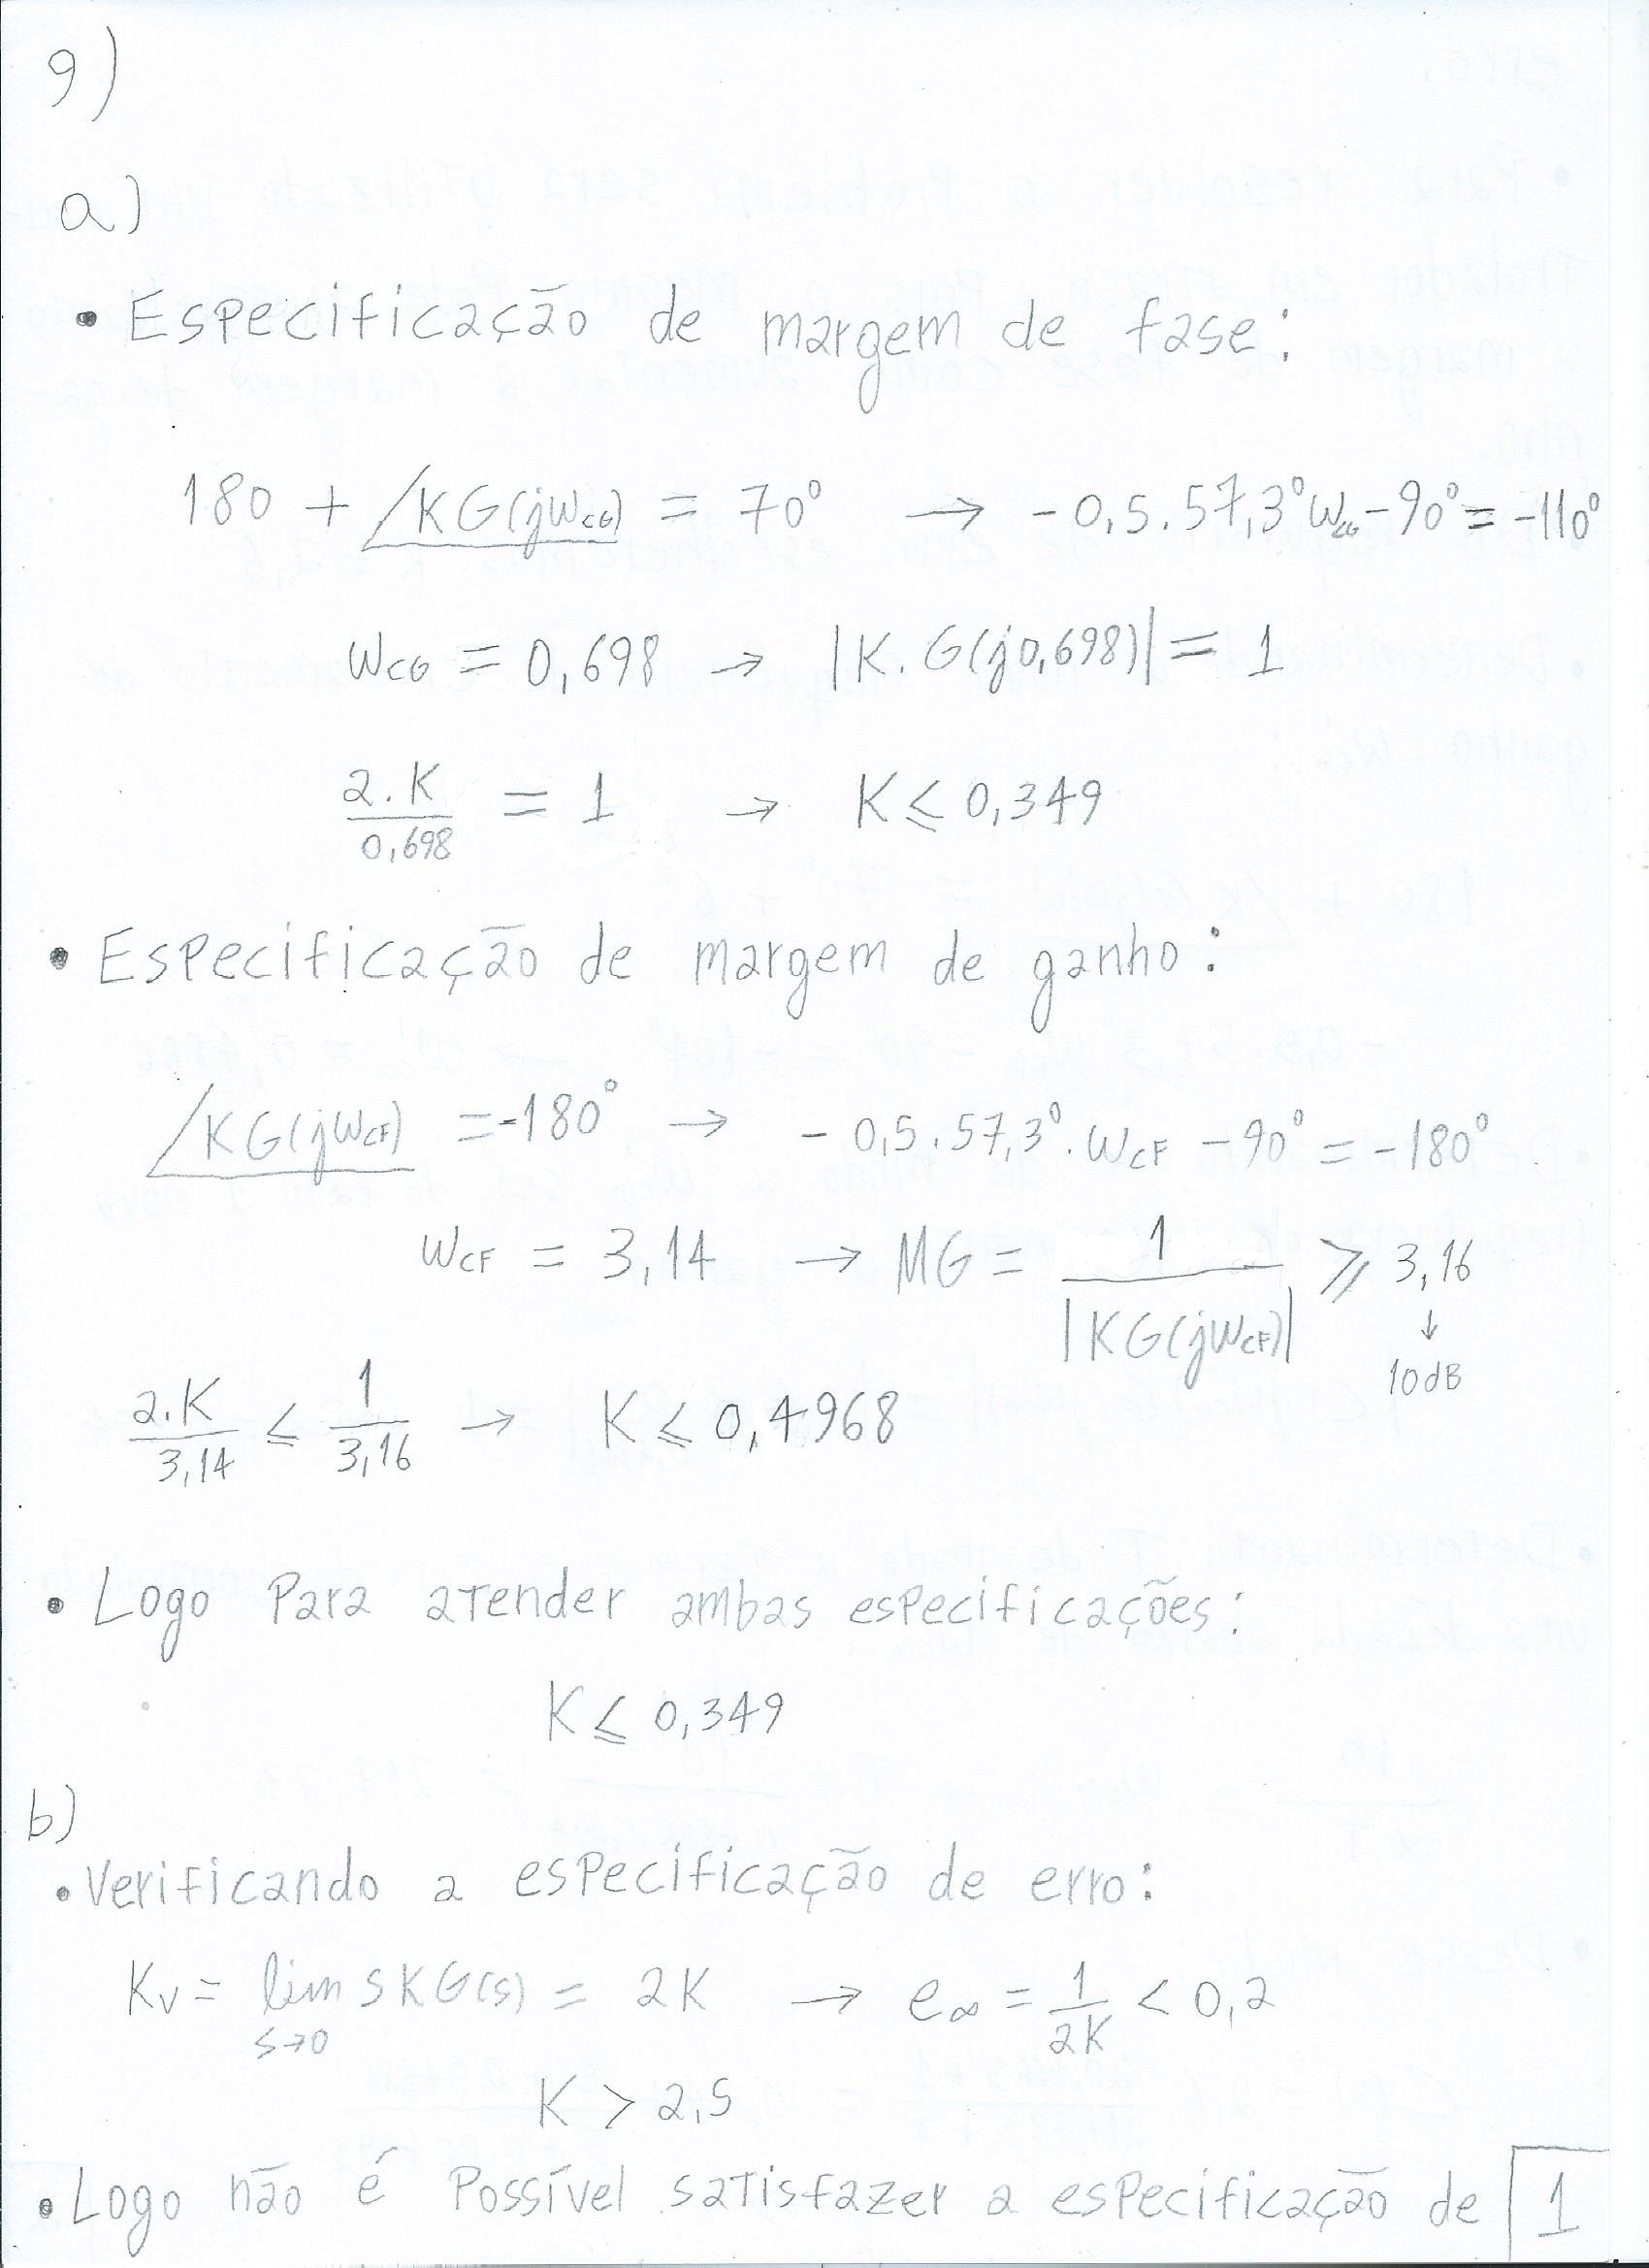 9)
a)
• Especificação de margem de fase:
180 + /KG(jωCG) = 70° → -0,5.57,3°ωCG-90°=-110°
ωCG = 0,698 → |K.G(j0,698)| = 1
2.K/0,698 = 1 → K ≤ 0,349
• Especificação de margem de ganho:
/KG(jωCF) =-180° → -0,5.57,3°.ωCF -90° = -180°
ωCF = 3,14 → MG = 1/|KG(jωCF)| ≥ 3,16
↓
10dB
2.K/3,14 ≤ 1/3,16 → K ≤ 0,4968
• Logo Para atender ambas especificações:
K ≤ 0,349
b)
• Verificando a especificação de erro:
Kv = lim s→0 SKG(s) = 2K → e∞ = 1/2K < 0,2
K > 2,5
• Logo não é Possível satisfazer a especificação de
1